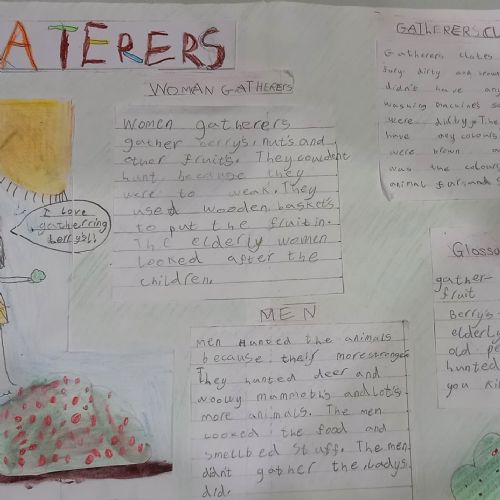 ATERERS
WOMAN GATHERERS
Women gatherers
gather berrys, nuts and
other fruits. They couldent
hunt because they
were to weak. They
used wooden baskets
to put the fruit in.
The elderly women
Looked after the
children.
I love
gatherring
berrys!
MEN
Men Hunted the animals
because their more stronger
They hunted deer and
woolly mammoths and lot's
more animals. The men
cooked the food and
smellbed stuff. The men
didn't gather the ladys
did.
GATHERERS CL
Gatherers clotes
fury dirty and brow
didn't have any
washing machines so
were dirty. The
have any colours
were brown
was the colour
animal fur and
Glosso
gather-
fruit
Berry's-
elderly
old pe
hunted
you ki